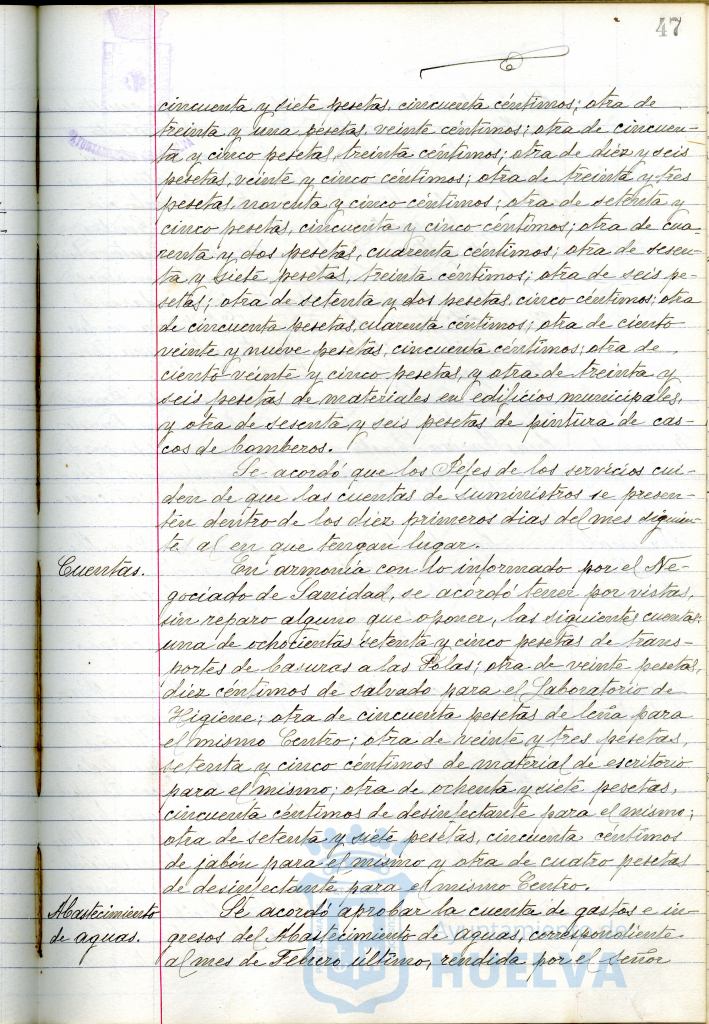 47
cincuenta y siete pesetas, cincuenta céntimos; otra de
treinta y una pesetas, veinte céntimos; otra de cincuen-
ta y cinco pesetas, treinta céntimos; otra de diéz y seis
pesetas, veinte y cinco céntimos; otra de treinta y tres
pesetas noventa y cinco céntimos; otra de setenta y
cinco pesetas, cincuenta y cinco céntimos; otra de cua-
renta y dos pesetas, cuarenta céntimos; otra de sesen-
ta y siete pesetas, treinta céntimos; otra de seis pe-
setas; otra de setenta y dos pesetas, cinco céntimos; otra
de cincuenta pesetas, cuarenta céntimos; otra de ciento
veinte y nueve pesetas, cincuenta céntimos; otra de
ciento veinte y cinco pesetas, y otra de treinta y
seis pesetas de materiales en edificios municipales,
y otra de sesenta y seis pesetas de pintura de cas-
cos de bomberos.
Se acordó que los Jefes de los servicios cui-
den de que las cuentas de suministros se presen-
ten dentro de los diéz primeros dias del mes siguien-
te al en que tengan lugar.
Cuentas. En armonía con lo informado por el Ne-
gociado de Sanidad, se acordó tener por vistas,
sin reparo alguno que oponer, las siguientes cuentas:
una de ochocientas setenta y cinco pesetas de trans-
portes de basuras a las Polas; otra de veinte pesetas,
diéz céntimos de salvado para el Laboratorio de
Higiene; otra de cincuenta pesetas de leña para
el mismo Centro; otra de veinte y tres pesetas,
setenta y cinco céntimos de material de escritorio
para el mismo; otra de ochenta y siete pesetas,
cincuenta céntimos de desinfectante para el mismo;
otra de setenta y siete pesetas, cincuenta céntimos
de jabón para el mismo y otra de cuatro pesetas
de desinfectante para el mismo Centro.
Abastecimiento de aguas. Se acordó aprobar la cuenta de gastos e in-
gresos del Abastecimiento de aguas, correspondiente
al mes de Febrero último, rendida por el señor
Ayuntamiento de
HUELVA